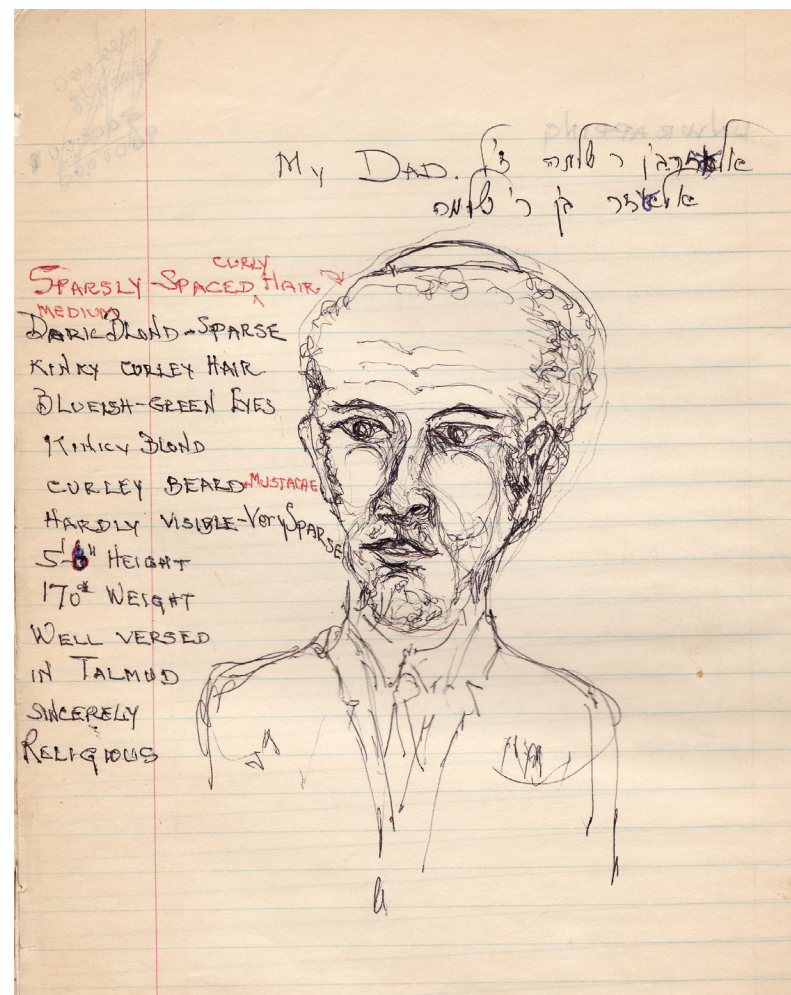 My DAD. בן ר שלמה ז"ל
בן ר' שלמה
CURLY
SPARSLY-SPACED HAIR
MEDIUM
DARK BLOND-SPARSE
KINKY CURLEY HAIR
BLUEISH-GREEN EYES
KINKY BLOND
CURLEY BEARD+MUSTACHE
HARDLY VISIBLE-VERY SPARSE
HEIGHT
170# WEIGHT
WELL VERSED
IN TALMUD
SINCERELY
RELIGIOUS